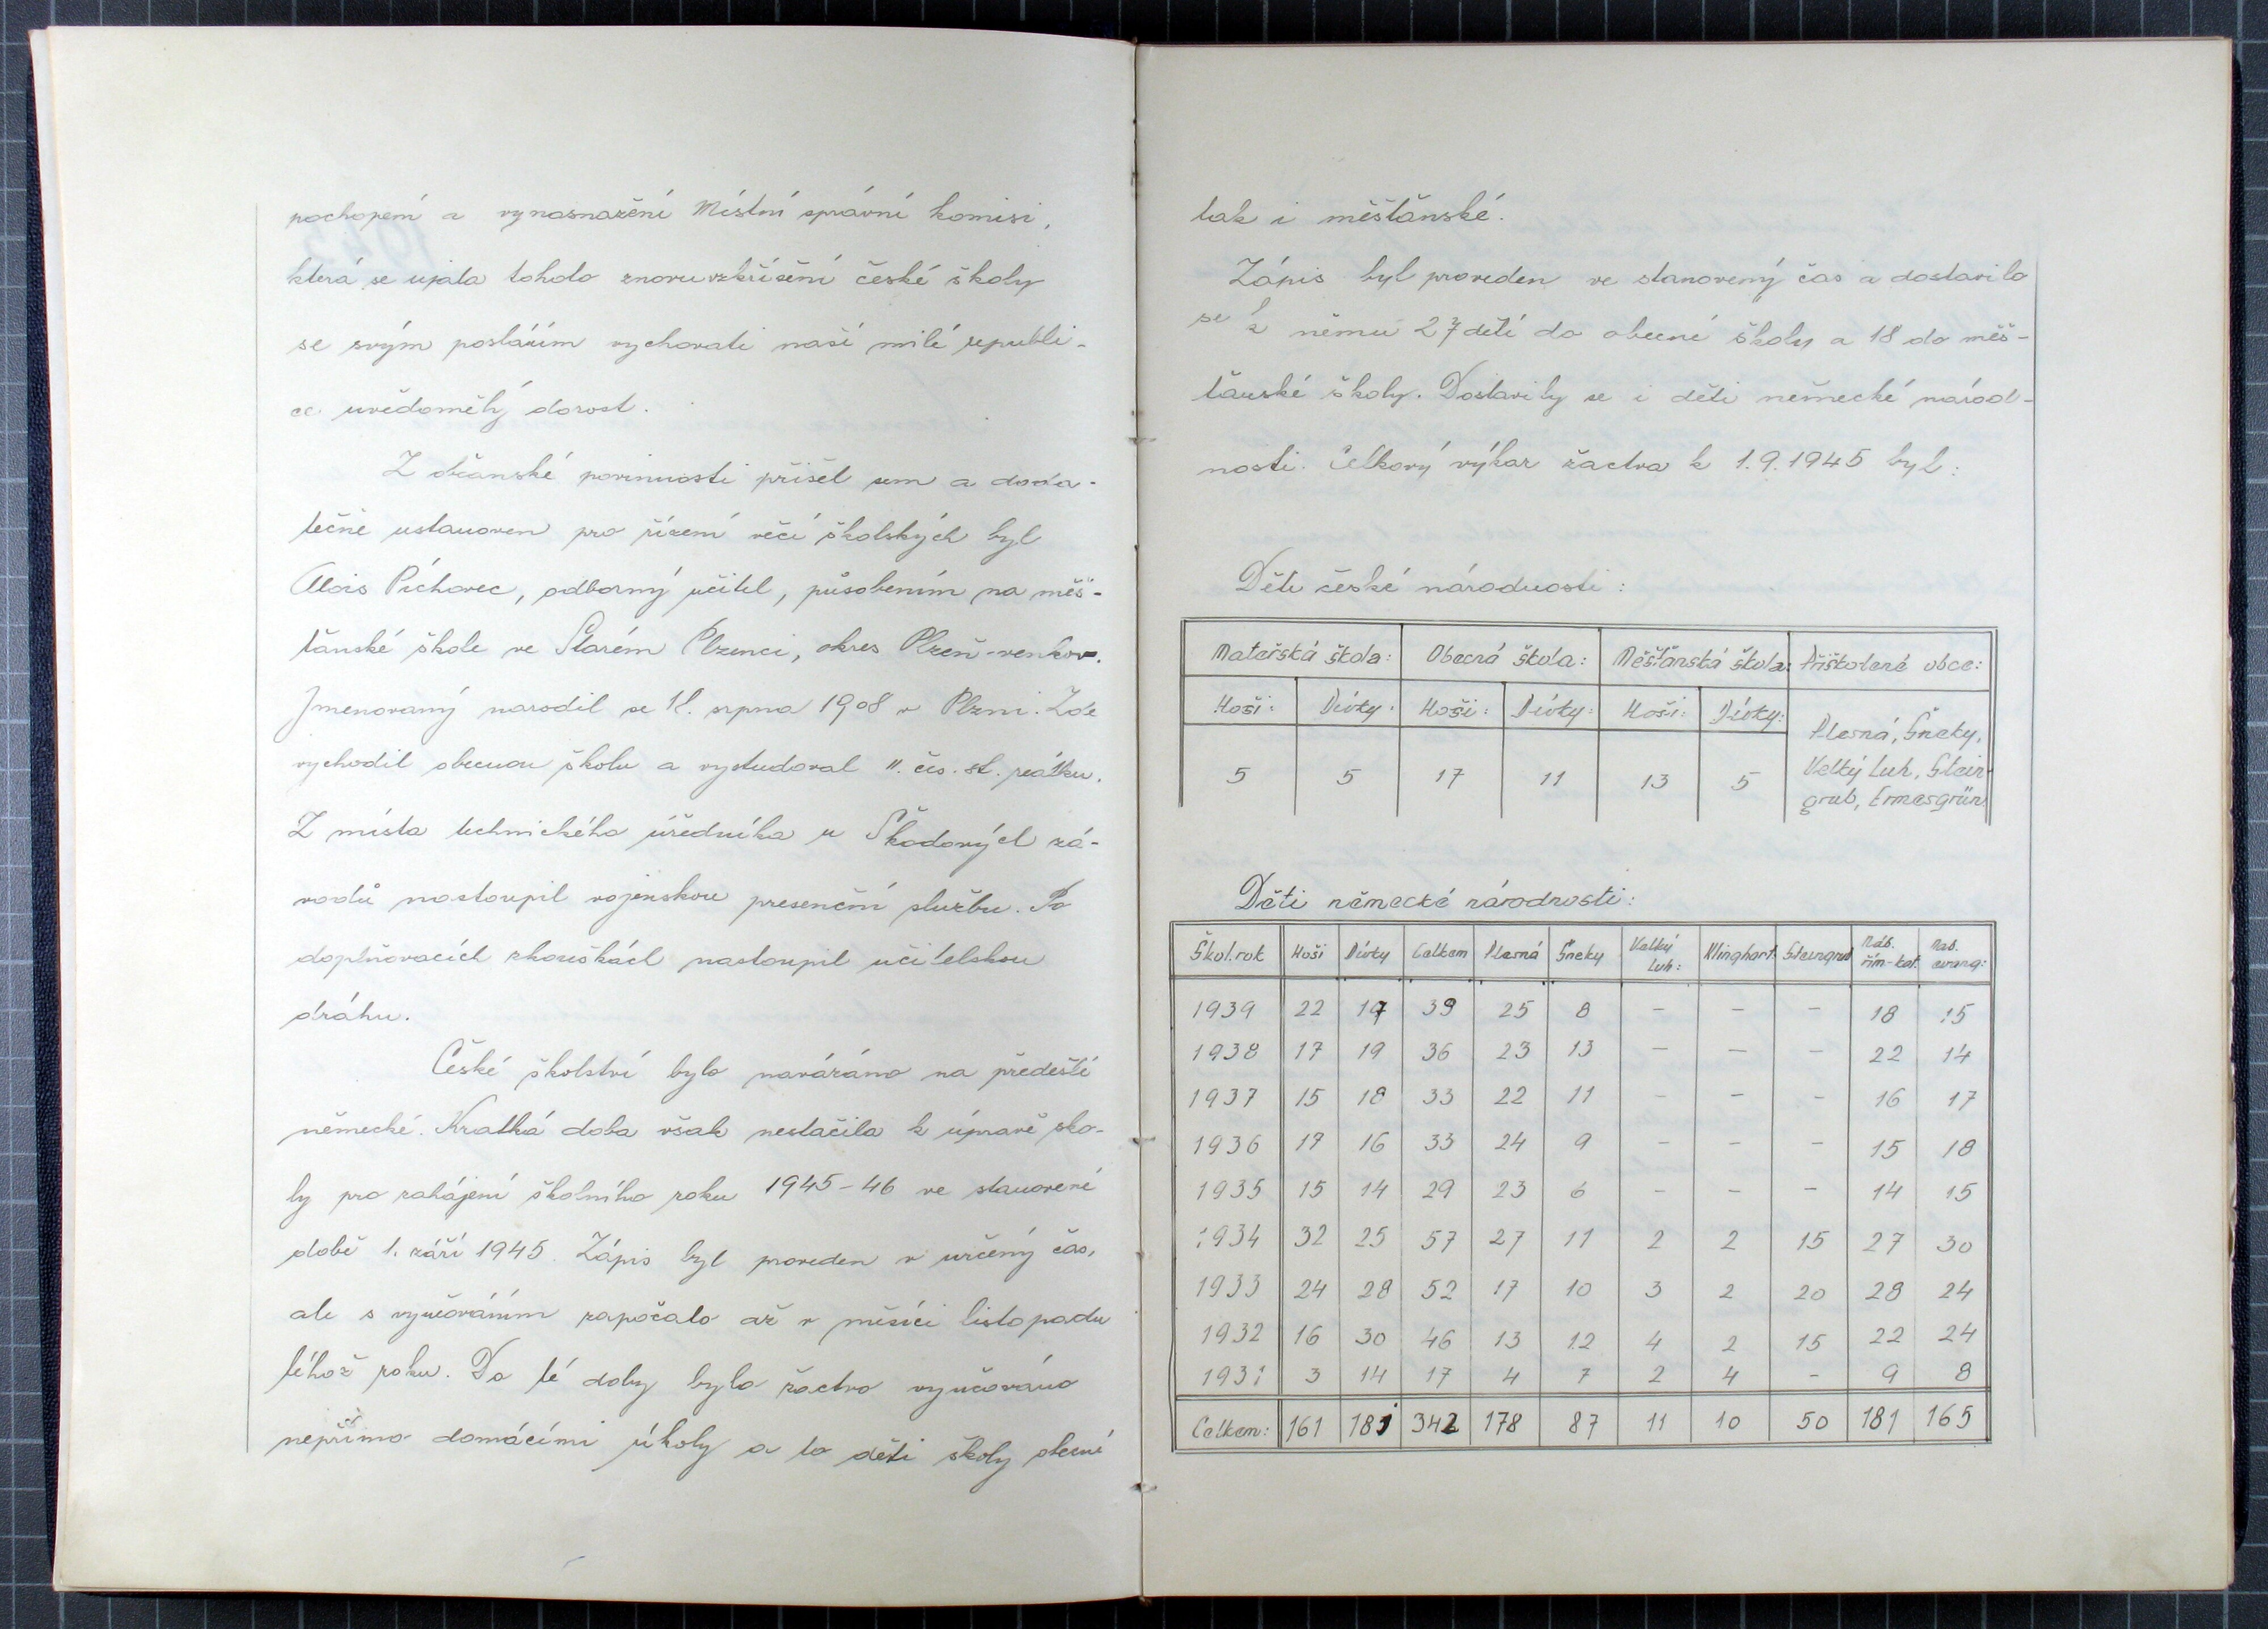 pochopení a vynasnažení Místní správní komisi,
která se ujala tohoto znovuvzkříšení české školy
se svým posláním vychovati naší milé republi-
ce uvědomělý dorost.
Z občanské povinnosti přišel sem a doda-
tečně ustanoven pro řízení věcí školských byl
Alois Píchovec, odborný učitel, působením na měš-
ťanské škole ve Starém Plzenci, okres Plzeň-venkov.
Jmenovaný narodil se 18. srpna 1908 v Plzni. Zde
vychodil obecnou školu a vystudoval II. čes. st. reálku.
Z místa technického úředníka u Škodových zá-
vodů nastoupil vojenskou presenční službu. Po
doplňovacích zkouškách nastoupil učitelskou
dráhu.
České školství bylo navázáno na předešlé
německé. Krátká doba však nestačila k úpravě ško-
ly pro zahájení školního roku 1945-46 ve stanovené
době 1. září 1945. Zápis byl proveden v určený čas,
ale s vyučováním započalo až v měsíci listopadu
téhož roku. Do té doby bylo žactvo vyučováno
nepřímo domácími úkoly a to děti školy obecné
tak i měšťanské.
Zápis byl proveden ve stanovený čas a dostavilo
se k němu 27 dětí do obecné školy a 18 do měš-
ťanské školy. Dostavily se i děti německé národ-
nosti. Celkový výkaz žactva k 1.9.1945 byl:
Děti české národnosti:
Mateřská škola: Obecná škola: Měšťanská škola: Přiškolené obce:
Hoši: Dívky: Hoši: Dívky: Hoši: Dívky: Plesná, Šneky,
5 5 17 11 13 5 Velký Luh, Stein-
grub, Ermesgrün
Děti německé národnosti:
Škol.rok Hoši Dívky Celkem Plesná Šneky Velký Luh: Klinghart Steingrub Náb. řím-kat. Nab. evang:
1939 22 17 39 25 8 - - - 18 15
1938 17 19 36 23 13 - - - 22 14
1937 15 18 33 22 11 - - - 16 17
1936 17 16 33 24 9 - - - 15 18
1935 15 14 29 23 6 - - - 14 15
1934 32 25 57 27 11 2 2 15 27 30
1933 24 28 52 17 10 3 2 20 28 24
1932 16 30 46 13 12 4 2 15 22 24
1931 3 14 17 4 7 2 4 - 9 8
Celkem: 161 181 342 178 87 11 10 50 181 165